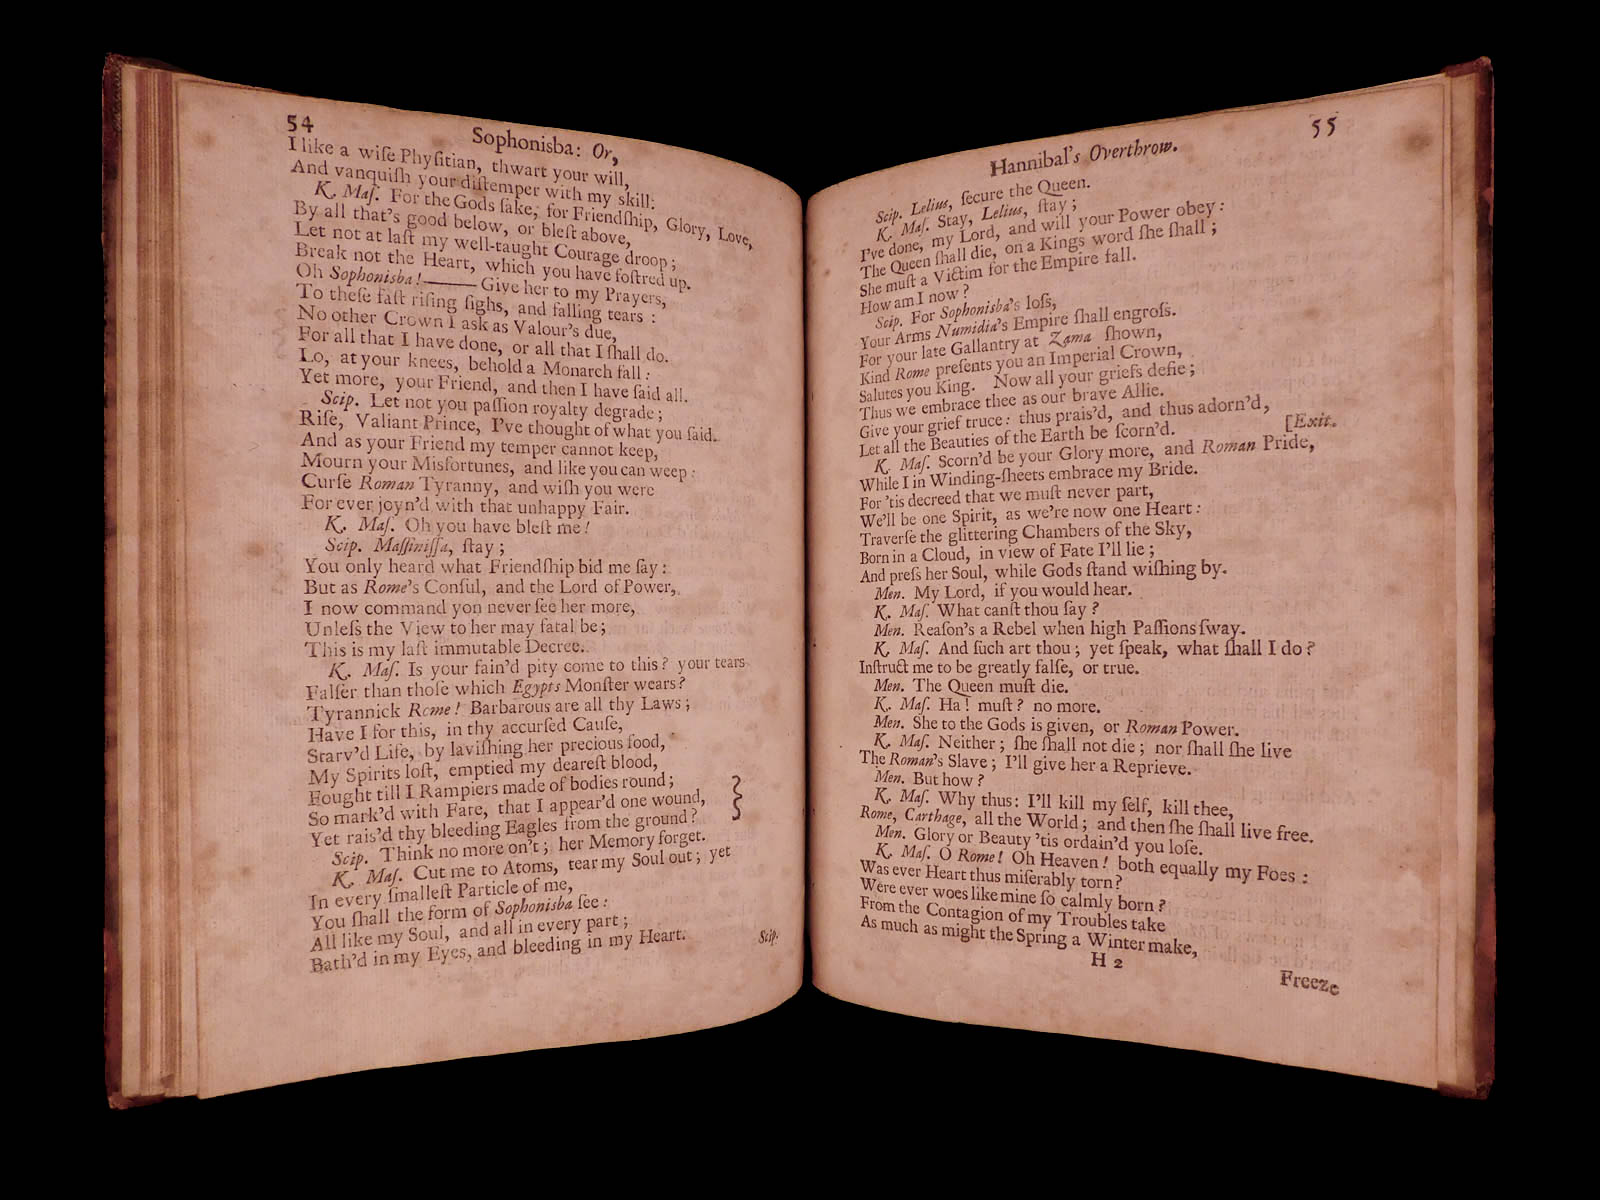 54
Sophonisba: Or,
I like a wiſe Phyſitian, thwart your will,
And vanquiſh your diſtemper with my skill.
K. Maſ. For the Gods ſake, for Friendſhip, Glory, Love,
By all that's good below, or bleſt above,
Let not at laſt my well-taught Courage droop;
Break not the Heart, which you have foſtred up.
Oh Sophonisba!—— Give her to my Prayers,
To theſe faſt riſing ſighs, and falling tears :
No other Crown I ask as Valour's due,
For all that I have done, or all that I ſhall do.
Lo, at your knees, behold a Monarch fall :
Yet more, your Friend, and then I have ſaid all.
Scip. Let not you paſſion royalty degrade ;
Riſe, Valiant Prince, I've thought of what you ſaid.
And as your Friend my temper cannot keep,
Mourn your Misfortunes, and like you can weep :
Curſe Roman Tyranny, and wiſh you were
For ever joyn'd with that unhappy Fair.
K. Maſ. Oh you have bleſt me !
Scip. Maſſiniſſa, ſtay ;
You only heard what Friendſhip bid me ſay :
But as Rome's Conſul, and the Lord of Power,
I now command yon never ſee her more,
Unleſs the View to her may fatal be ;
This is my laſt immutable Decree.
K. Maſ. Is your fain'd pity come to this ? your tears
Falſer than thoſe which Egypts Monſter wears ?
Tyrannick Rome ! Barbarous are all thy Laws ;
Have I for this, in thy accurſed Cauſe,
Starv'd Life, by laviſhing her precious food,
My Spirits loſt, emptied my deareſt blood,
Fought till I Rampiers made of bodies round ;
So mark'd with Fate, that I appear'd one wound,
Yet rais'd thy bleeding Eagles from the ground ?
Scip. Think no more on't ; her Memory forget.
K. Maſ. Cut me to Atoms, tear my Soul out ; yet
In every ſmalleſt Particle of me,
You ſhall the form of Sophonisba ſee :
All like my Soul, and all in every part ;
Bath'd in my Eyes, and bleeding in my Heart.
Scip.
55
Hannibal's Overthrow.
Scip. Lelius, ſecure the Queen.
K. Maſ. Stay, Lelius, ſtay ;
I've done, my Lord, and will your Power obey :
The Queen ſhall die, on a Kings word ſhe ſhall ;
She muſt a Victim for the Empire fall.
How am I now ?
Scip. For Sophonisba's loſs,
Your Arms Numidia's Empire ſhall engroſs.
For your late Gallantry at Zama ſhown,
Kind Rome preſents you an Imperial Crown,
Salutes you King. Now all your griefs defie ;
Thus we embrace thee as our brave Allie.
Give your grief truce : thus prais'd, and thus adorn'd,
Let all the Beauties of the Earth be ſcorn'd. [Exit.
K. Maſ. Scorn'd be your Glory more, and Roman Pride,
While I in Winding-ſheets embrace my Bride.
For 'tis decreed that we muſt never part,
We'll be one Spirit, as we're now one Heart :
Traverſe the glittering Chambers of the Sky,
Born in a Cloud, in view of Fate I'll lie ;
And preſs her Soul, while Gods ſtand wiſhing by.
Men. My Lord, if you would hear.
K. Maſ. What canſt thou ſay ?
Men. Reaſon's a Rebel when high Paſſions ſway.
K. Maſ. And ſuch art thou ; yet ſpeak, what ſhall I do ?
Inſtruct me to be greatly falſe, or true.
Men. The Queen muſt die.
K. Maſ. Ha ! muſt ? no more.
Men. She to the Gods is given, or Roman Power.
K. Maſ. Neither ; ſhe ſhall not die ; nor ſhall ſhe live
The Roman's Slave ; I'll give her a Reprieve.
Men. But how ?
K. Maſ. Why thus : I'll kill my ſelf, kill thee,
Rome, Carthage, all the World ; and then ſhe ſhall live free.
Men. Glory or Beauty 'tis ordain'd you loſe.
K. Maſ. O Rome ! Oh Heaven ! both equally my Foes :
Was ever Heart thus miſerably torn ?
Were ever woes like mine ſo calmly born ?
From the Contagion of my Troubles take
As much as might the Spring a Winter make,
H 2
Freeze